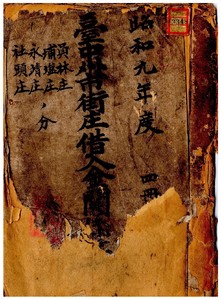 昭和九年度
四冊
臺中州街庄借入金關
員林庄
埔塩庄
永靖庄
社頭庄
ノ分